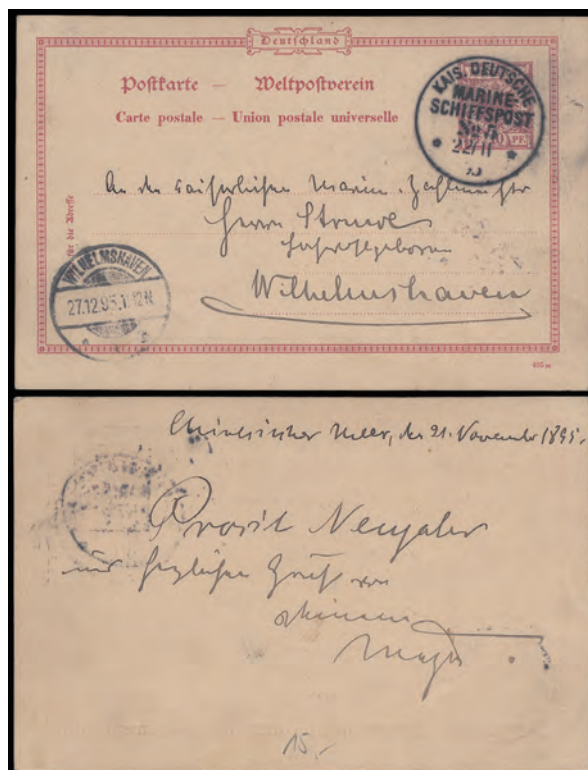 Deutschland
Postkarte — Weltpostverein
Carte postale — Union postale universelle
KAIS. DEUTSCHE
MARINE-
SCHIFFSPOST
No 5
22/11
An den Kaiserlichen Marine-Zahlmeister
Herrn Struve
Wilhelmshaven
für die Adresse
WILHELMSHAVEN
27.12.95.
Chinesisches Meer, den 21. November 1895.
Prosit Neujahr
und herzlichen Gruß von
15,-